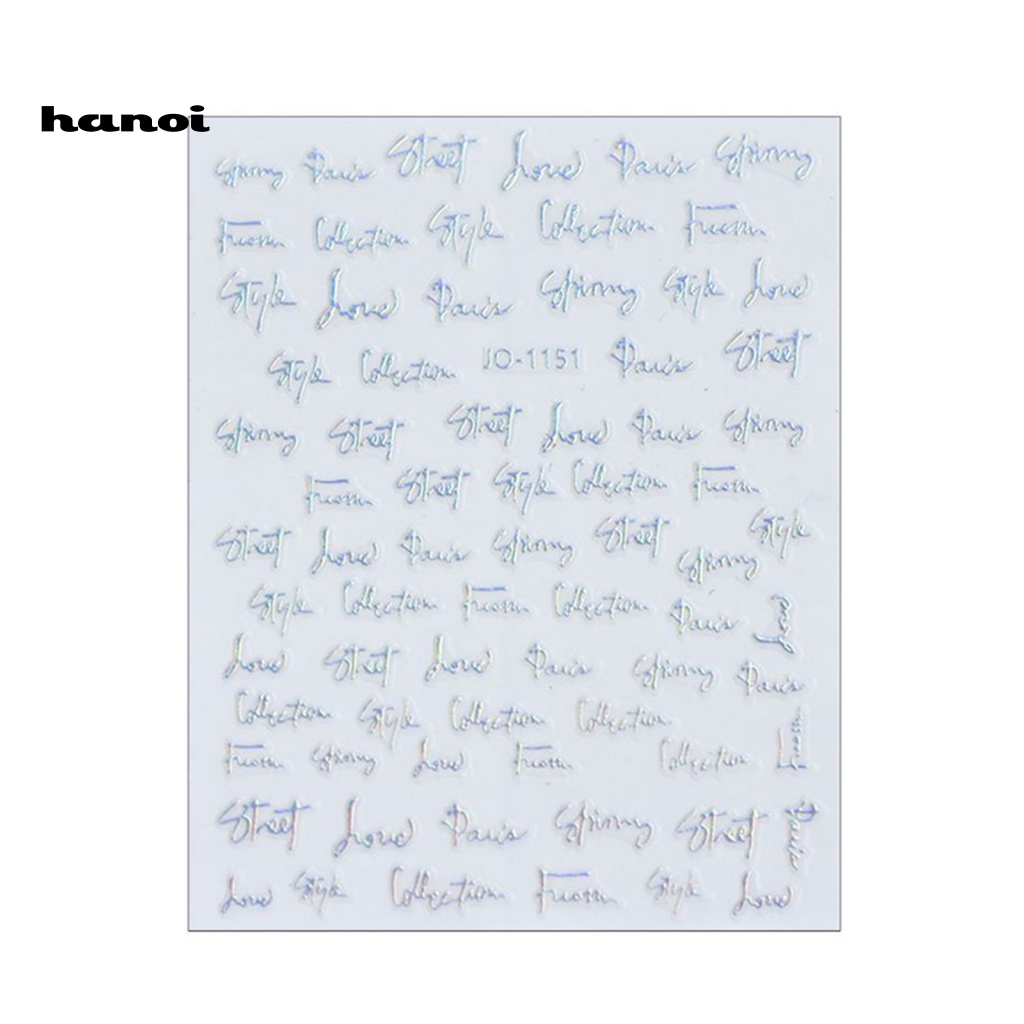 hanoi
Spring Paris Street Love Paris Spring
From Collection Style Collection From
Style Love Paris Spring Style Love
Style Collection JO-1151 Paris Street
Spring Street Street Love Paris Spring
From Street Style Collection From
Street Love Paris Spring Street Spring Style
Style Collection From Collection Paris Love
Love Street Love Paris Spring Paris
Collection Style Collection Collection From
From Spring Love From Collection
Street Love Paris Spring Street Paris
Love Style Collection From Style Love